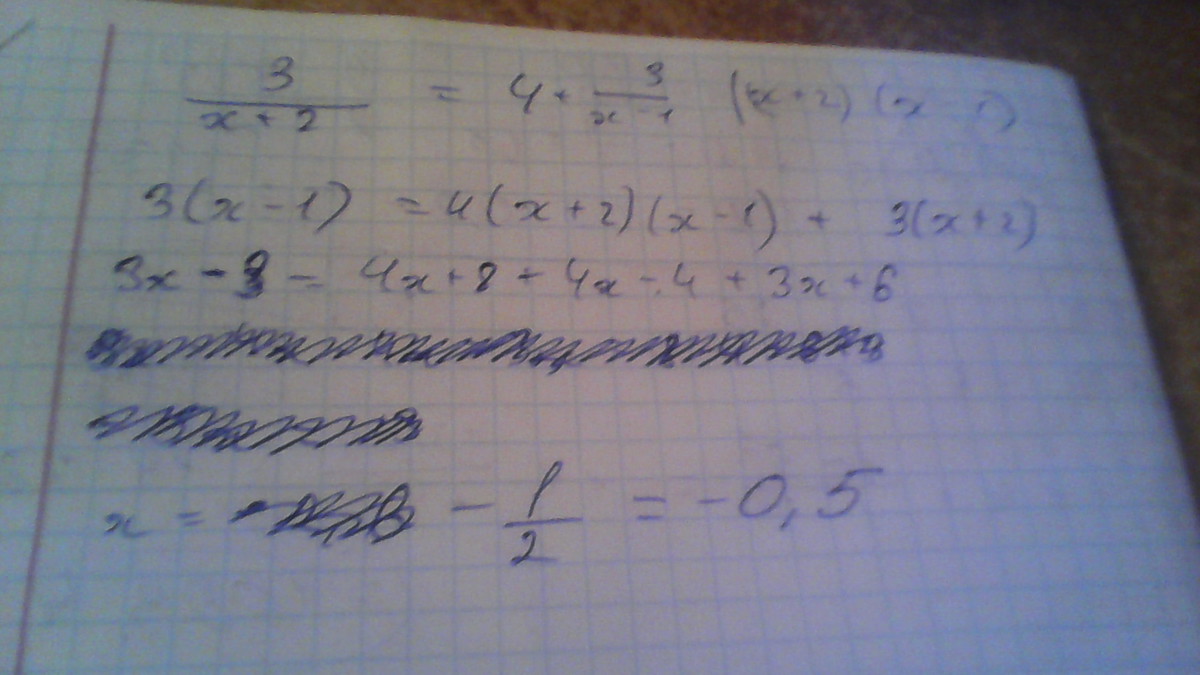 3/(x+2) = 4 + 3/(x-1) (x+2)(x-1)
3(x-1) = 4(x+2)(x-1) + 3(x+2)
3x - 3 = 4x+8 + 4x - 4 + 3x + 6
x = - 1/2 = -0,5